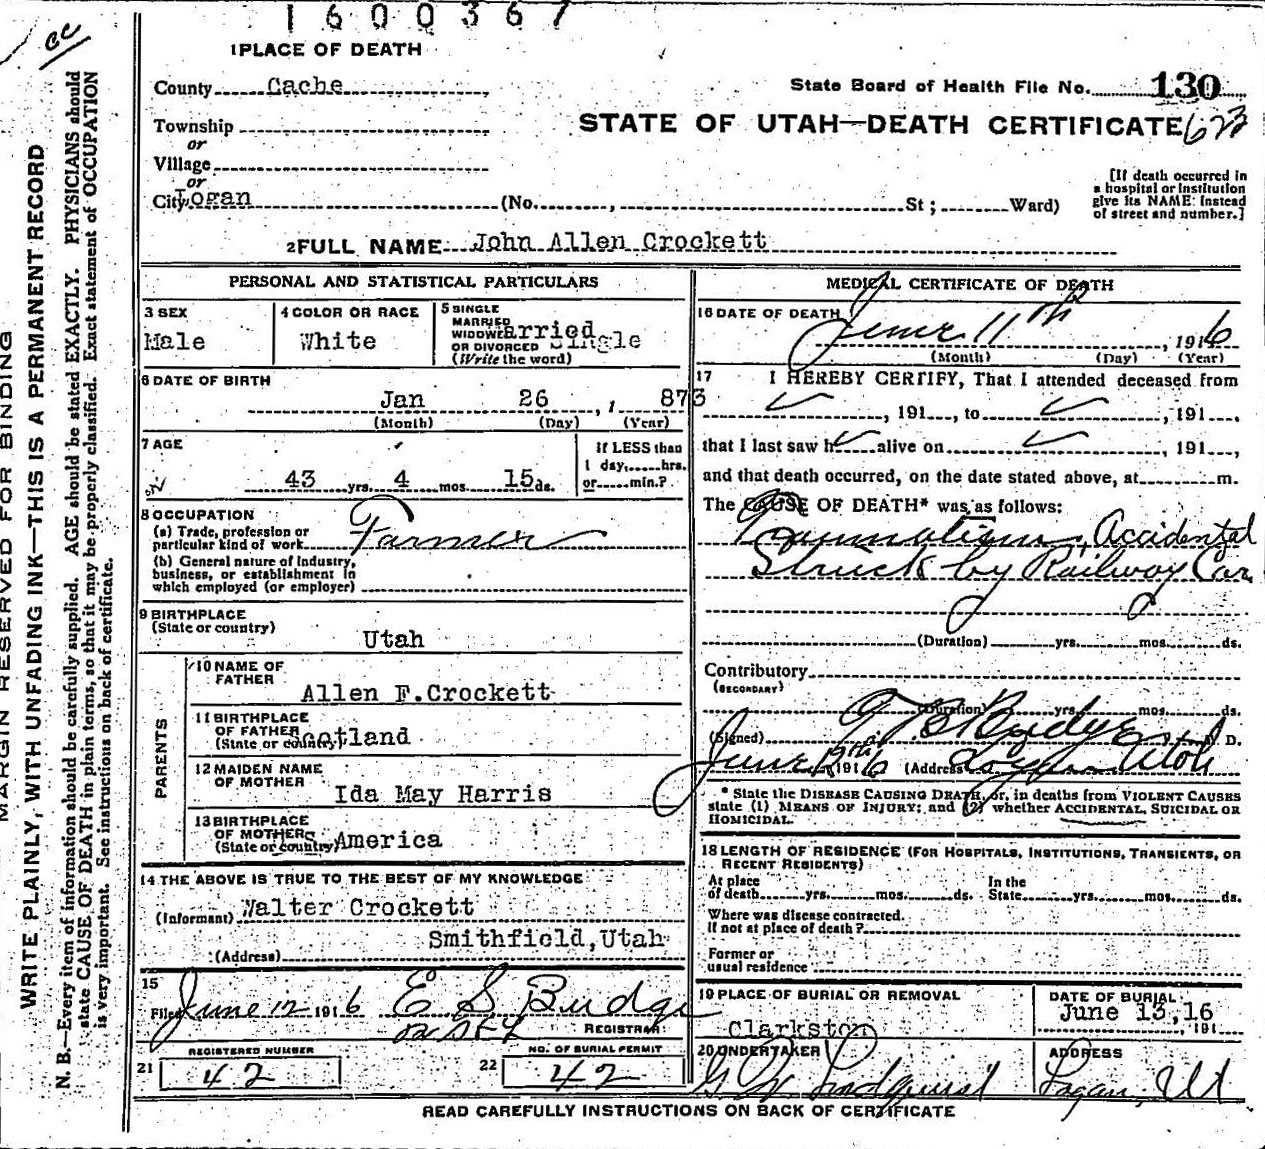 1600367
cc
MARGIN RESERVED FOR BINDING
WRITE PLAINLY, WITH UNFADING INK—THIS IS A PERMANENT RECORD
N. B.—Every item of information should be carefully supplied. AGE should be stated EXACTLY. PHYSICIANS should
state CAUSE OF DEATH in plain terms, so that it may be properly classified. Exact statement of OCCUPATION
is very important. See instructions on back of certificate.
1 PLACE OF DEATH
County Cache
State Board of Health File No. 130
Township
or
STATE OF UTAH—DEATH CERTIFICATE 623
Village
or
City Logan (No. , St ; Ward)
[If death occurred in
a hospital or institution
give its NAME: instead
of street and number.]
2 FULL NAME John Allen Crockett
PERSONAL AND STATISTICAL PARTICULARS
3 SEX
Male
4 COLOR OR RACE
White
5 SINGLE
MARRIED
WIDOWED
OR DIVORCED
(Write the word)
arried
Single
6 DATE OF BIRTH
Jan 26, 1873
(Month) (Day) (Year)
7 AGE
43 yrs. 4 mos. 15 ds.
If LESS than
1 day, hrs.
or min.?
8 OCCUPATION
(a) Trade, profession or
particular kind of work Farmer
(b) General nature of Industry,
business, or establishment in
which employed (or employer)
9 BIRTHPLACE
(State or country)
Utah
PARENTS
10 NAME OF
FATHER
Allen F.Crockett
11 BIRTHPLACE
OF FATHER
(State or country)
Scotland
12 MAIDEN NAME
OF MOTHER
Ida May Harris
13 BIRTHPLACE
OF MOTHER
(State or country)
America
14 THE ABOVE IS TRUE TO THE BEST OF MY KNOWLEDGE
(Informant) Walter Crockett
(Address) Smithfield,Utah
15
Filed June 12 1916 E S Budge
REGISTRAR
REGISTERED NUMBER
21 42
NO. OF BURIAL PERMIT
22 42
MEDICAL CERTIFICATE OF DEATH
16 DATE OF DEATH
June 11th, 1916
(Month) (Day) (Year)
17 I HEREBY CERTIFY, That I attended deceased from
, 191 , to , 191 ,
that I last saw h alive on , 191 ,
and that death occurred, on the date stated above, at m.
The CAUSE OF DEATH* was as follows:
Traumatism, Accidental
Struck by Railway Car
(Duration) yrs. mos. ds.
Contributory
(SECONDARY)
(Duration) yrs. mos. ds.
(Signed) Budge M. D.
June 12th 1916 (Address) Logan Utah
* State the DISEASE CAUSING DEATH, or, in deaths from VIOLENT CAUSES
state (1) MEANS OF INJURY; and (2) whether ACCIDENTAL, SUICIDAL OR
HOMICIDAL.
18 LENGTH OF RESIDENCE (FOR HOSPITALS, INSTITUTIONS, TRANSIENTS, OR
RECENT RESIDENTS)
At place
of death yrs. mos. ds.
In the
State yrs. mos. ds.
Where was disease contracted.
If not at place of death?
Former or
usual residence
19 PLACE OF BURIAL OR REMOVAL
Clarkston
DATE OF BURIAL
June 13,16
, 191
20 UNDERTAKER
Lindquist
ADDRESS
Logan, Ut
READ CAREFULLY INSTRUCTIONS ON BACK OF CERTIFICATE